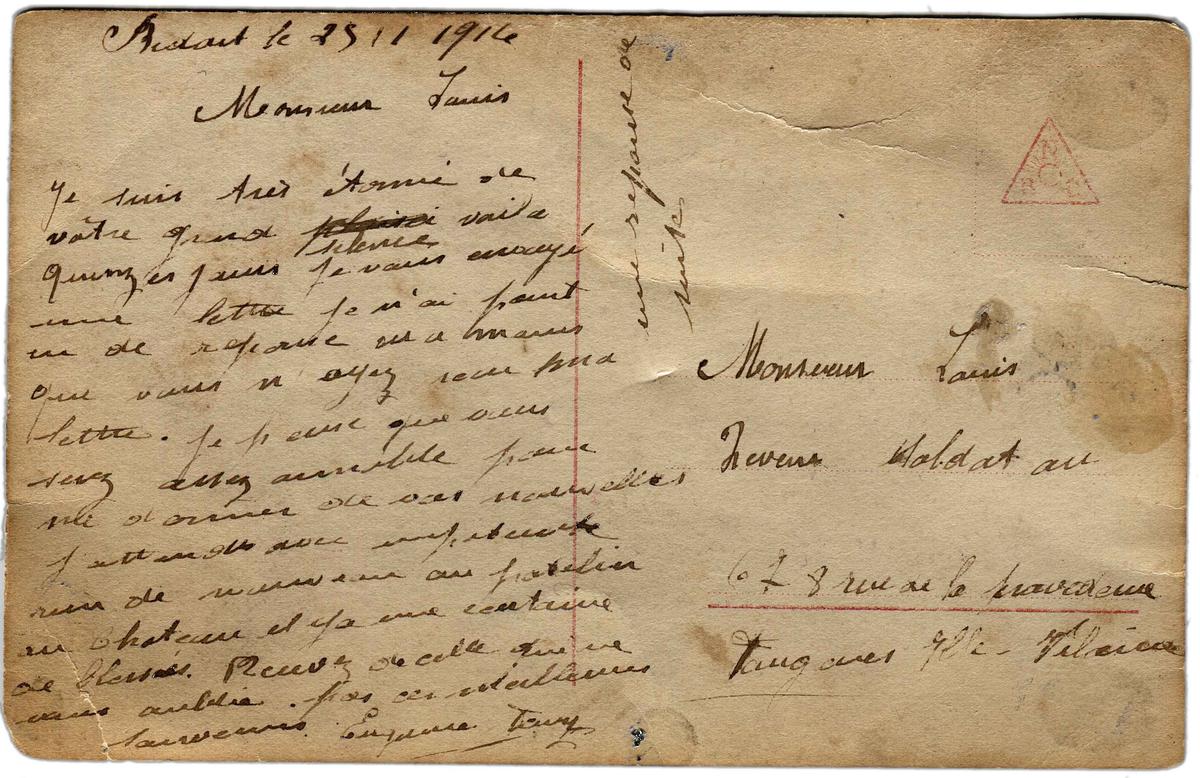 le 23 11 1914
Monsieur Louis
Je suis très étonné de
vôtre grand plaisi voila
silence
quinzes jours je vous envoyé
une lettre je n'ai point
u de reponse
que vous n ayez ma
lettre. Je pense que vous
serez assez aimable pour
me donner de vos nouvelles
j attends avec
rien de nouveau au patelin
au Chateau il y a une centaine
de blessés. Recevez de celle qui ne
vous oublie pas ces meilleurs
souvenirs.
une reponse de
suite
Monsieur Louis
Soldat au
67 8 rue de la providence
Fougères Ille-Vilaine